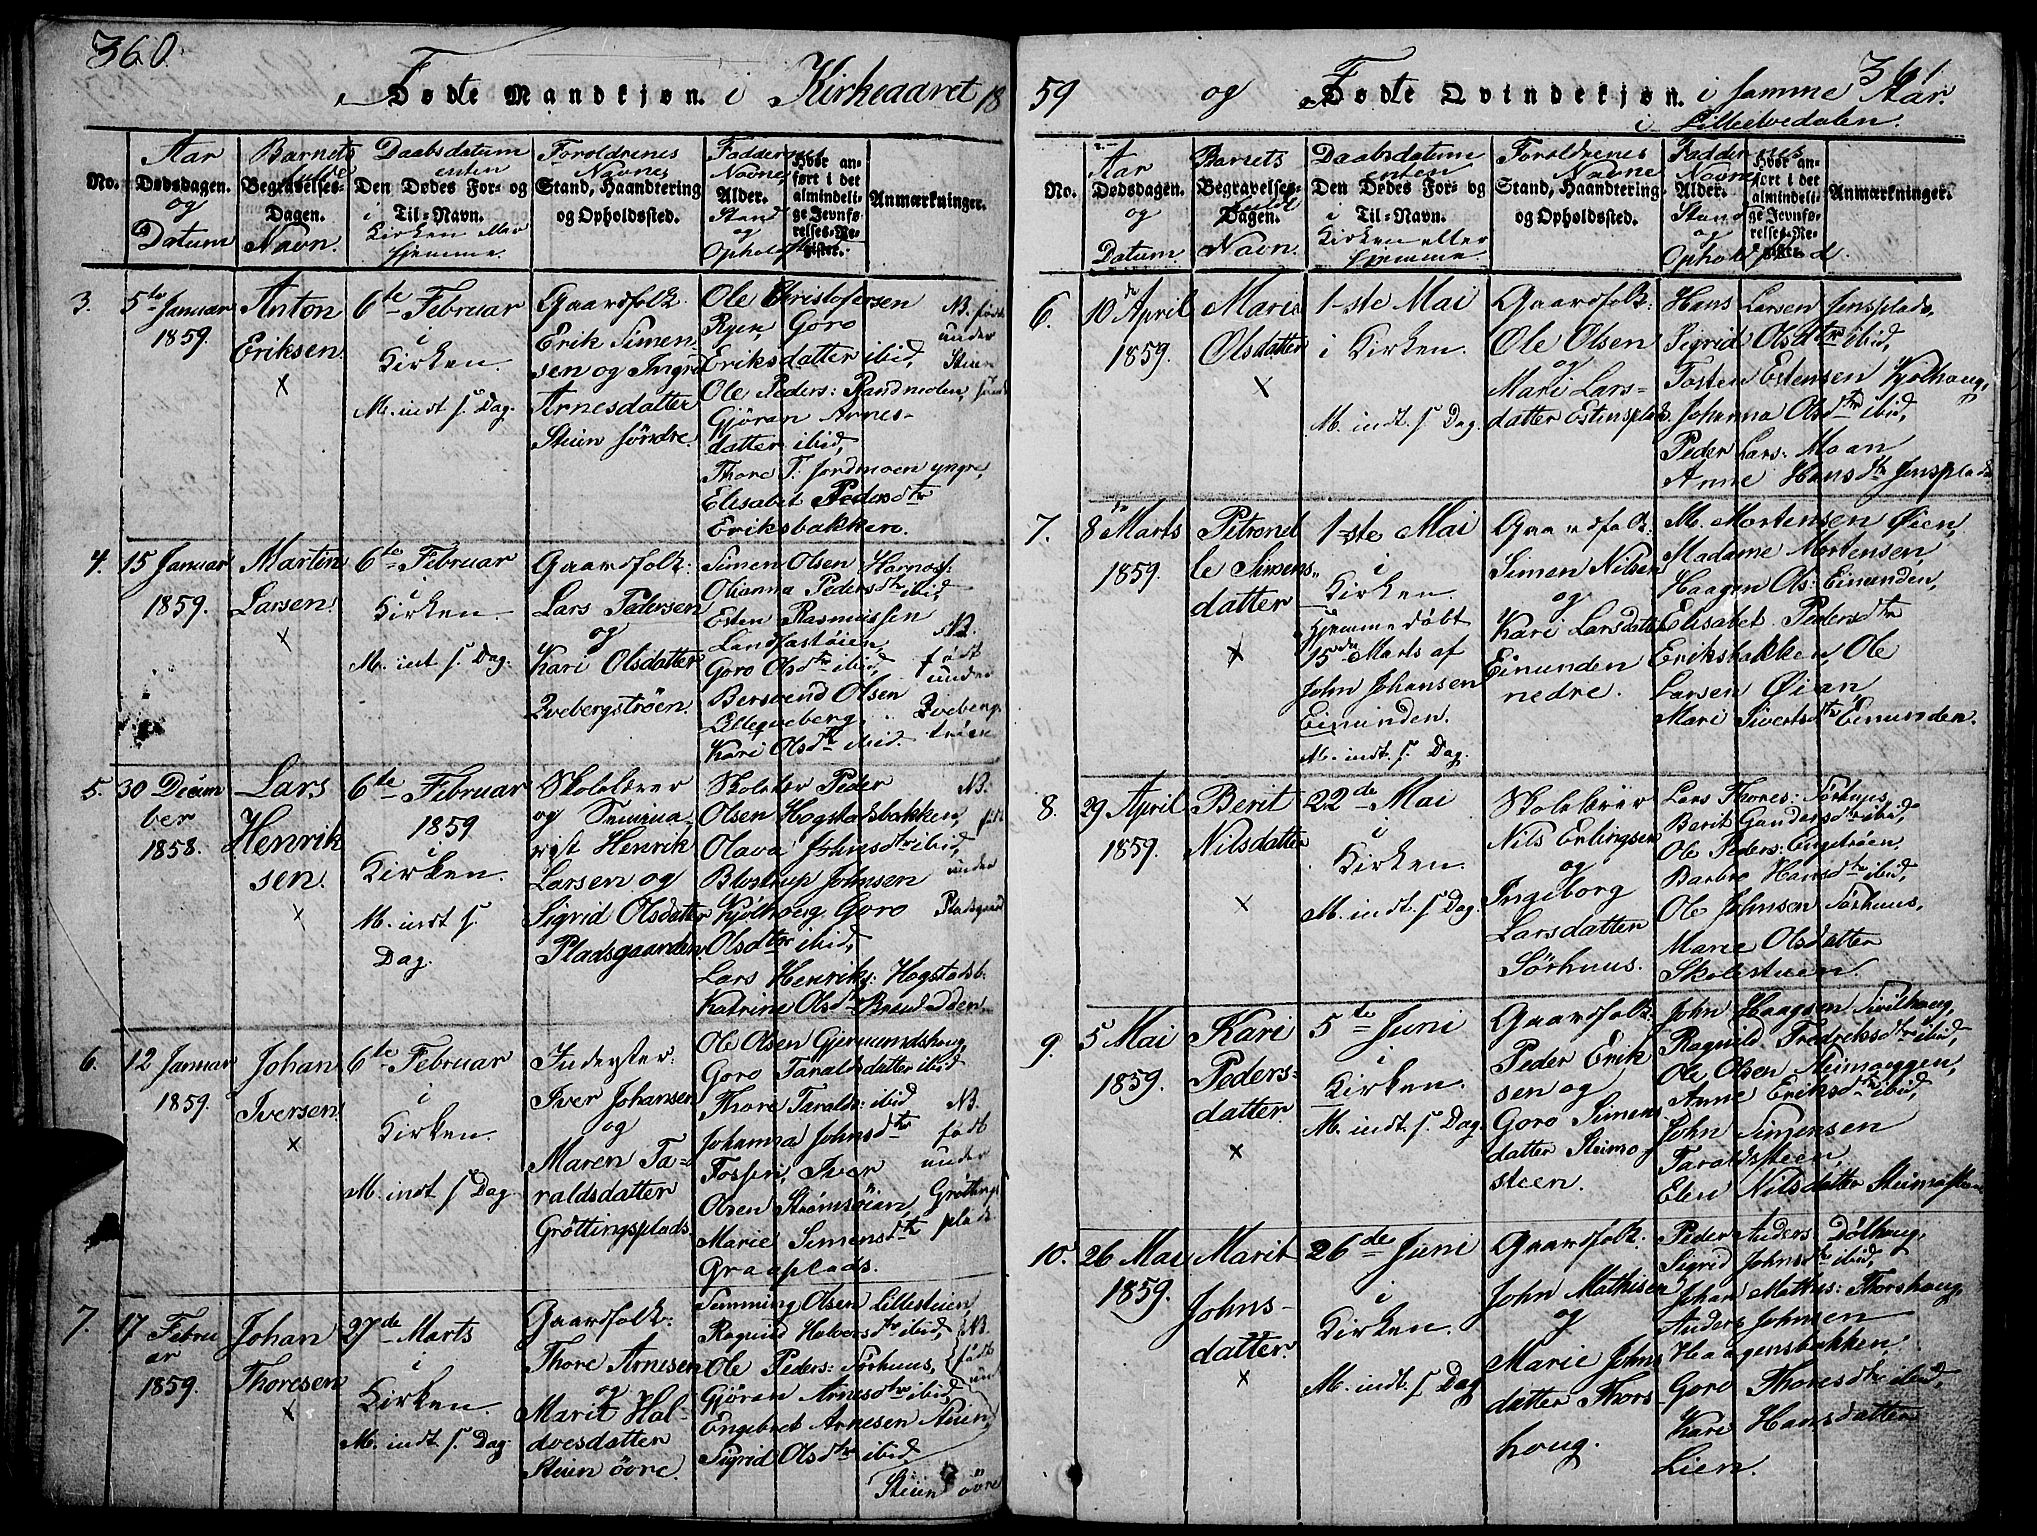 360
Fødte Mandkjøn. i Kirkeaaret 18
No.
Aar
Dødsdagen.
og
Datum
Barnets
fulde
Begravelses-
Dagen.
Navn.
Daabsdatum
enten
Den Dødes For- og
i
Til-Navn.
Kirken eller
hjemme.
Forældrenes
Navne
Stand, Haandtering
og Opholdssted.
Faddernes
Navne,
Alder.
Stand
og
Opholdssted
Hvor an-
ført i det
almindeli-
ge Jevnfø-
relses-Re-
gister.
Anmærkninger.
3.
5te Januar
1859.
Anton
Eriksen.
×
6te Februar
i
Kirken.
M. indt. s. Dag.
Gaardfolk.
Erik Simen-
sen og Ingri
Arnesdatter
Steien søndre.
Ole Christofersen
Ryen, Goro
Eriksdatter ibid,
Ole Peders: Randmælen,
Gjøran Arnes-
datter ibid,
Thore T. Jordmoen yngre,
Elisabet Pedersdtr
Eriksbakken.
NB. født
under
Steien
søndr
4.
15 Januar
1859.
Martin
Larsen.
×
6te Februar
i
Kirken.
M. indt. s. Dag.
Gaardfolk:
Lars Pedersen
og
Kari Olsdatter
Qvebergstrøen.
Simen Olsen Harnos:
Olianna Pedersdtr ibid
Esten Rasmussen
Goro Olsdtr ibid,
Bersvend Olsen
Lilleqveberg,
Kari Olsdtr ibid.
NB.
født
under
Qveberg
trøen
5.
30 Decem
ber
1858.
Lars
Henrik
sen.
×
6te Februar
1859
i
Kirken.
M. indt s.
Dag.
Skolelærer
og Seminar-
ist Henrik
Larsen og
Sigrid Olsdatter
Pladsgaarden
Skolelær Peder
Olsen Hogstadbakken,
Olava Johnsdtr ibid,
Blostrup Johnsen
Kjølhoug, Goro
Olsdtr ibid,
Lars Henriks: Hogstadsb.
Katrine Olsdtr
NB.
født
under
Pladsgaard
6.
12 Januar
1859.
Johan
Iversen.
×
6te Februar
i
Kirken.
M. indt. s. Dag
Inderster:
Iver Johansen
og
Maren Ta-
raldsdatter
Grøttingsplads.
Ole Olsen Gjermundshoug,
Goro Taraldsdatter ibid
Thore Taralds: ibid
Johanna Johnsdtr
Fosseri, Iver
Olsen Strømsøien,
Marie Simensdtr
Graaplads.
NB.
født
under
Grøttings
plads
7.
17 Febru
ar
1859.
Johan
Thoresen
×
27de Marts
i
Kirken.
M. indt. s. Dag
Gaardfolk:
Thore Arnesen
og
Marit Hal-
dvesdatter
Steien øvre.
Semming Olsen Lillesteien
Ragnild Halvorsdtr ibid,
Ole Peders: Sørhuus,
Gjøran Arnesdtr ibid,
Engebret Arnesen Steien,
Sigrid Olsdtr ibid
NB.
født
und
Steien øvre
59 og Fødte Qvindekjøn. i samme Aar.
361
i Lilleelvedalen.
No.
Aar
Dødsdagen.
og
Datum.
Barnets
Begravelses-
fulde
Dagen.
Navn.
Daabsdatum
enten
Den Dødes For- og
i
Til-Navn.
Kirken eller
hjemme
Forældrenes
Navne
Stand, Haandtering
og Opholdssted.
Faddernes
Navne
Alder.
Stand
og
Opholdssted.
Hvor an-
ført i det
almindeli-
ge Jevnfø-
relses-Re-
gister.
Anmærkninger.
6.
10de April
1859.
Maria
Olsdatter
×
1-ste Mai
i Kirken.
M. indt. s. Dag.
Gaardfolk:
Ole Olsen
og
Mari Lars-
datter Estensplads
Hans Larsen Jensplads,
Sigrid Olsdtr ibid,
Tosten Estensen Kjølhoug,
Johanna Olsdtr ibid,
Peder Lars: Moan
Anne Hansdtr Jensplads
7.
8de Marts
1859.
Petronel
le Simens-
datter
×
1-ste Mai
i
Kirken.
Hjemmedøbt
15de Marts af
John Johansen
Eimunden.
M. indt. s. Dag.
Gaardfolk:
Simen Nilsen
og
Kari Larsdatter
Einunden
nedre.
M. Mortensen Øien,
Madame Mortensen,
Haagen Ols: Eimunden,
Elisabet Pedersdtr
Eriksbakken, Ole
Larsen Øian,
Mari Sivertsdtr Eimunden.
8.
29 April
1859.
Berit
Nilsdatter
×
22de Mai
i
Kirken.
M. indt. s. Dag.
Skolelærer
Nils Erlingsen
og
Ingeborg
Larsdatter
Sørhuus.
Lars Thores: Sørhuus,
Berit Gundersdtr ibid,
Ole Peders: Engetrøen,
Barbro Hansdtr ibid,
Ole Johnsen Sørhuus,
Marie Olsdatter
Skolestuen.
9.
5 Mai
1859.
Kari
Peders-
datter.
×
5te Juni
i
Kirken.
M. indt. s. Dag.
Gaardfolk:
Peder Erik
sen og
Goro Simens
datter Steimo
steen.
John Haagsen
Ragnild Fredriksdtr ibid,
Ole Olsen Steimoeggen,
Anne Eriksdtr ibid,
John Simensen
Taraldssteen,
Elen Nilsdatter Steimosteen
10.
26 Mai
1859.
Marit
Johns-
datter.
×
26de Juni
i
Kirken.
M. indt. s. Dag
Gaardfolk:
John Mathisen
og
Marie Johns
datter Thors-
houg.
Peder Anders Dølhoug,
Sigrid Johnsdtr ibid,
Johan Mathis: Thorshoug,
Anders Johnsen
Haagensbakken
Goro Thoresdtr ibid,
Kari Hansdatter
Lien.